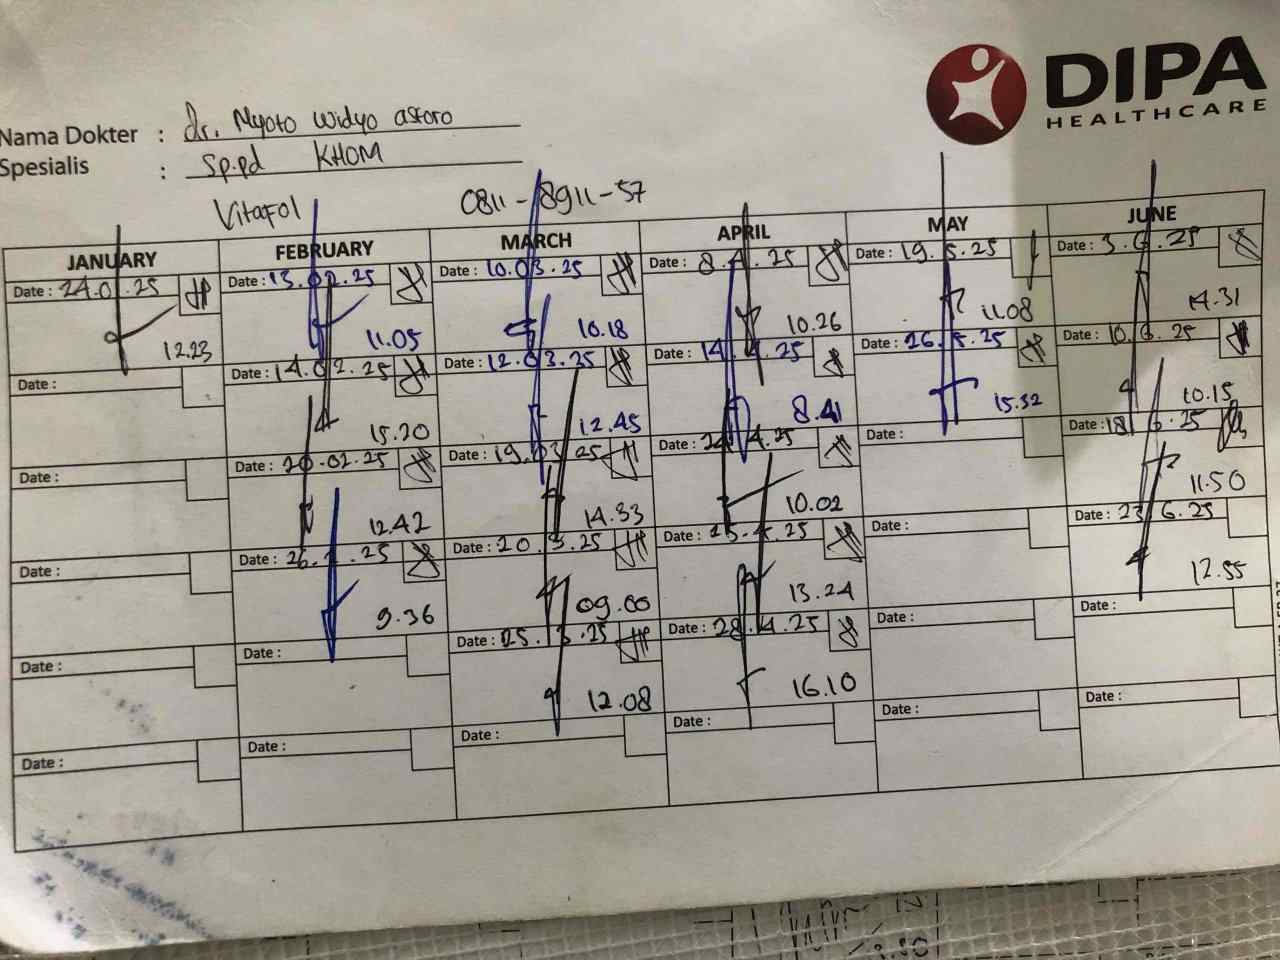 DIPA
HEALTHCARE
Nama Dokter : dr. Myoto Widyo asroro
Spesialis : Sp.pd KHOM
Vitafol 0811-8911-57
JANUARY FEBRUARY MARCH APRIL MAY JUNE
Date : 24.01.25 Date : 13.02.25 Date : 10.03.25 Date : 8.4.25 Date : 19.5.25 Date : 3.6.25
12.23 11.05 10.18 10.26 11.08 14.31
Date : Date : 14.02.25 Date : 12.03.25 Date : 14.4.25 Date : 26.5.25 Date : 10.6.25
15.20 12.45 8.41 15.32 10.15
Date : Date : 20.02.25 Date : 19.03.25 Date : 24.4.25 Date : Date : 18.6.25
12.42 14.33 10.02 11.50
Date : Date : 26.2.25 Date : 20.3.25 Date : 25.4.25 Date : Date : 23.6.25
9.36 09.00 13.24 12.55
Date : Date : Date : 25.3.25 Date : 28.4.25 Date : Date :
12.08 16.10
Date : Date : Date : Date : Date : Date :